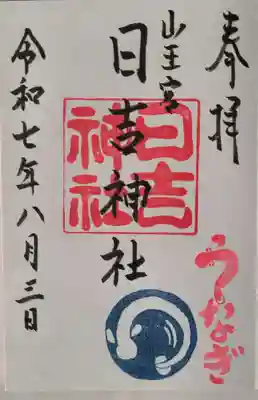 奉拝
山王宮
日吉神社
日吉
神社
令和七年八月三日
うなぎ